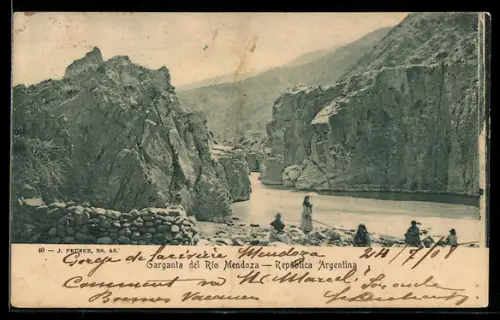 40 — J. PEUSER, BS. AS.
Garganta del Río Mendoza — República Argentina
Gorge de la rivière Mendoza 24/7/0
Comment va M. Marcel
Bonnes Vacances